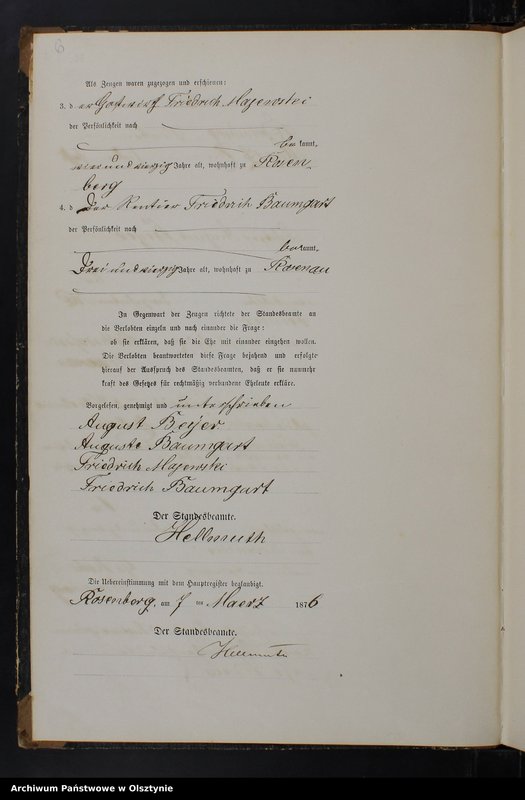 6
Als Zeugen waren zugezogen und erschienen:
3. d er Gastwirt Friedrich Majewski
der Persönlichkeit nach
be kannt,
vier und vierzig Jahre alt, wohnhaft zu Rosen
berg
4. d Der Rentier Friedrich Baumgart
der Persönlichkeit nach
be kannt,
Drei und vierzig Jahre alt, wohnhaft zu Rosenau
In Gegenwart der Zeugen richtete der Standesbeamte an
die Verlobten einzeln und nach einander die Frage:
ob sie erklären, daß sie die Ehe mit einander eingehen wollen.
Die Verlobten beantworteten diese Frage bejahend und erfolgte
hierauf der Ausspruch des Standesbeamten, daß er sie nunmehr
kraft des Gesetzes für rechtmäßig verbundene Eheleute erkläre.
Vorgelesen, genehmigt und unterschrieben
August Beyer
Auguste Baumgart
Friedrich Majewski
Friedrich Baumgart
Der Standesbeamte.
Hellmuth
Die Uebereinstimmung mit dem Hauptregister beglaubigt.
Rosenberg, am 7 ten Maerz 1876
Der Standesbeamte.
Hellmuth
Archiwum Państwowe w Olsztynie